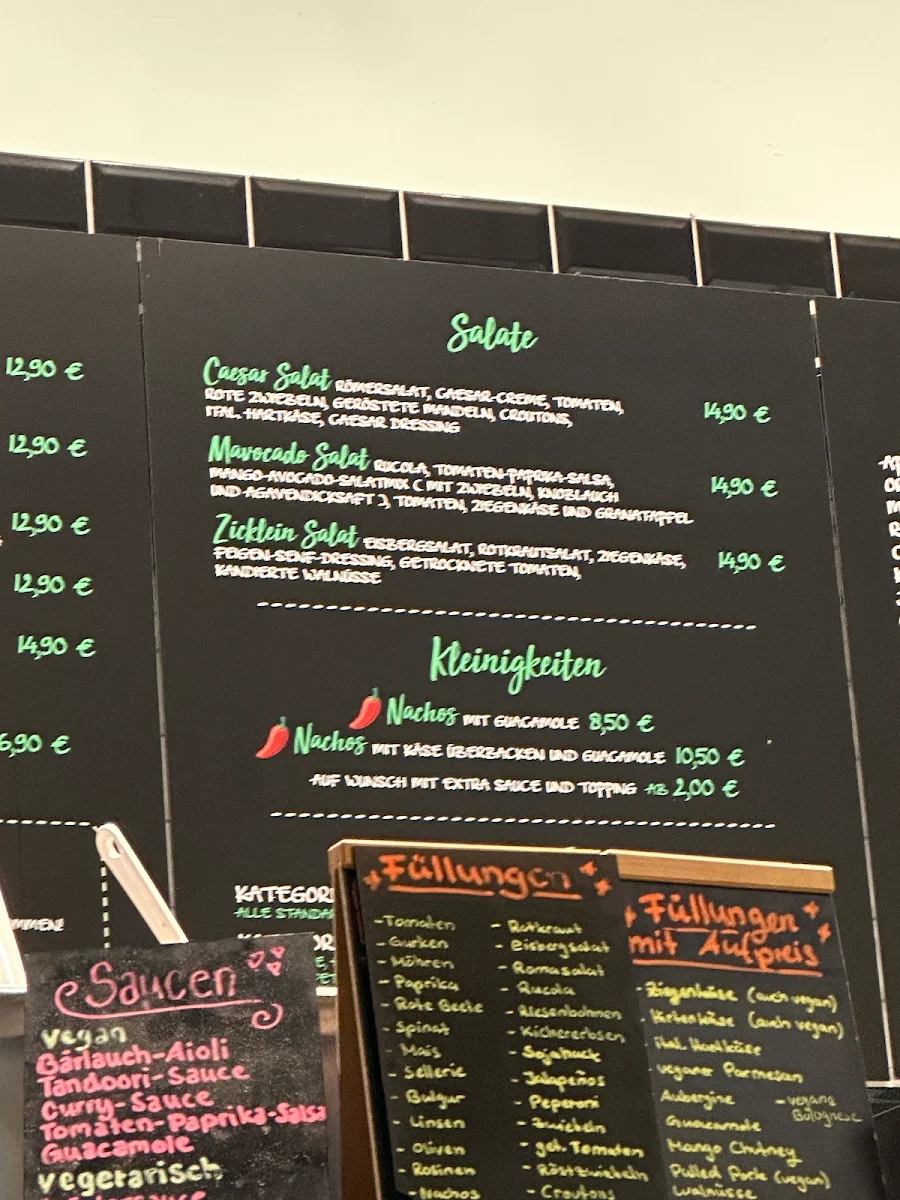 12,90 €
12,90 €
12,90 €
12,90 €
14,90 €
6,90 €
Salate
Caesar Salat RÖMERSALAT, CAESAR-CREME, TOMATEN,
ROTE ZWIEBELN, GERÖSTETE MANDELN, CROUTONS,
ITAL. HARTKÄSE, CAESAR DRESSING
14,90 €
Mavocado Salat RUCOLA, TOMATEN-PAPRIKA-SALSA,
MANGO-AVOCADO-SALATMIX ( MIT ZWIEBELN, KNOBLAUCH
UND AGAVENDICKSAFT ), TOMATEN, ZIEGENKÄSE UND GRANATAPFEL
14,90 €
Zicklein Salat EISBERGSALAT, ROTKRAUTSALAT, ZIEGENKÄSE,
FEIGEN-SENF-DRESSING, GETROCKNETE TOMATEN,
KANDIERTE WALNÜSSE
14,90 €
Kleinigkeiten
Nachos MIT GUACAMOLE 8,50 €
Nachos MIT KÄSE ÜBERBACKEN UND GUACAMOLE 10,50 €
AUF WUNSCH MIT EXTRA SAUCE UND TOPPING AB 2,00 €
KATEGORI
ALLE STANDA
MMEN!
Saucen
vegan
Bärlauch-Aioli
Tandoori-Sauce
Curry-Sauce
Tomaten-Paprika-Salsa
Guacamole
vegetarisch
Füllungen
- Tomaten
- Gurken
- Möhren
- Paprika
- Rote Beete
- Spinat
- Mais
- Sellerie
- Bulgur
- Linsen
- Oliven
- Rosinen
- Nachos
- Rotkraut
- Eisbergsalat
- Romasalat
- Rucola
- Riesenbohnen
- Kichererbsen
- Sojahack
- Jalapeños
- Peperoni
- Zwiebeln
- get. Tomaten
- Röstzwiebeln
- Croutons
Füllungen
mit Aufpreis
- Ziegenkäse (auch vegan)
- Hirtenkäse (auch vegan)
- ital. Hartkäse
- veganer Parmesan
Aubergine
- vegane
Bolognese
Guacamole
Mango Chutney
Pulled Pork (vegan)
Walnüsse